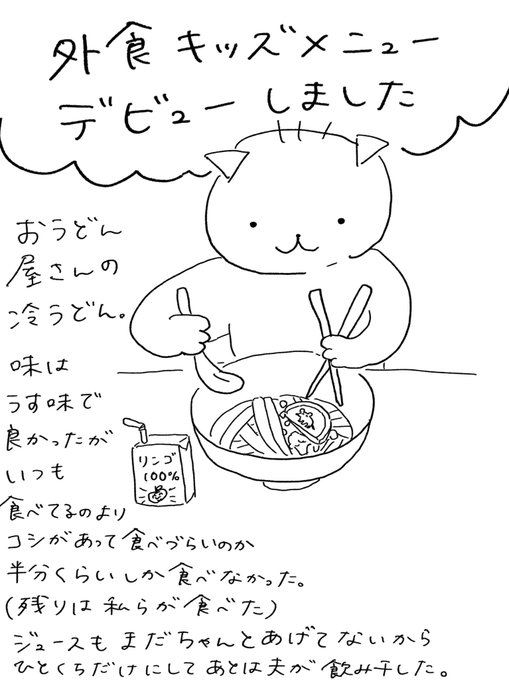 外食キッズメニュー
デビューしました
おうどん
屋さんの
冷うどん。
味は
うす味で
良かったが
いつも
食べてるのより
コシがあって食べづらいのか
半分くらいしか食べなかった。
(残りは私らが食べた)
ジュースもまだちゃんとあげてないから
ひとくちだけにしてあとは夫が飲み干した。
リンゴ
100%